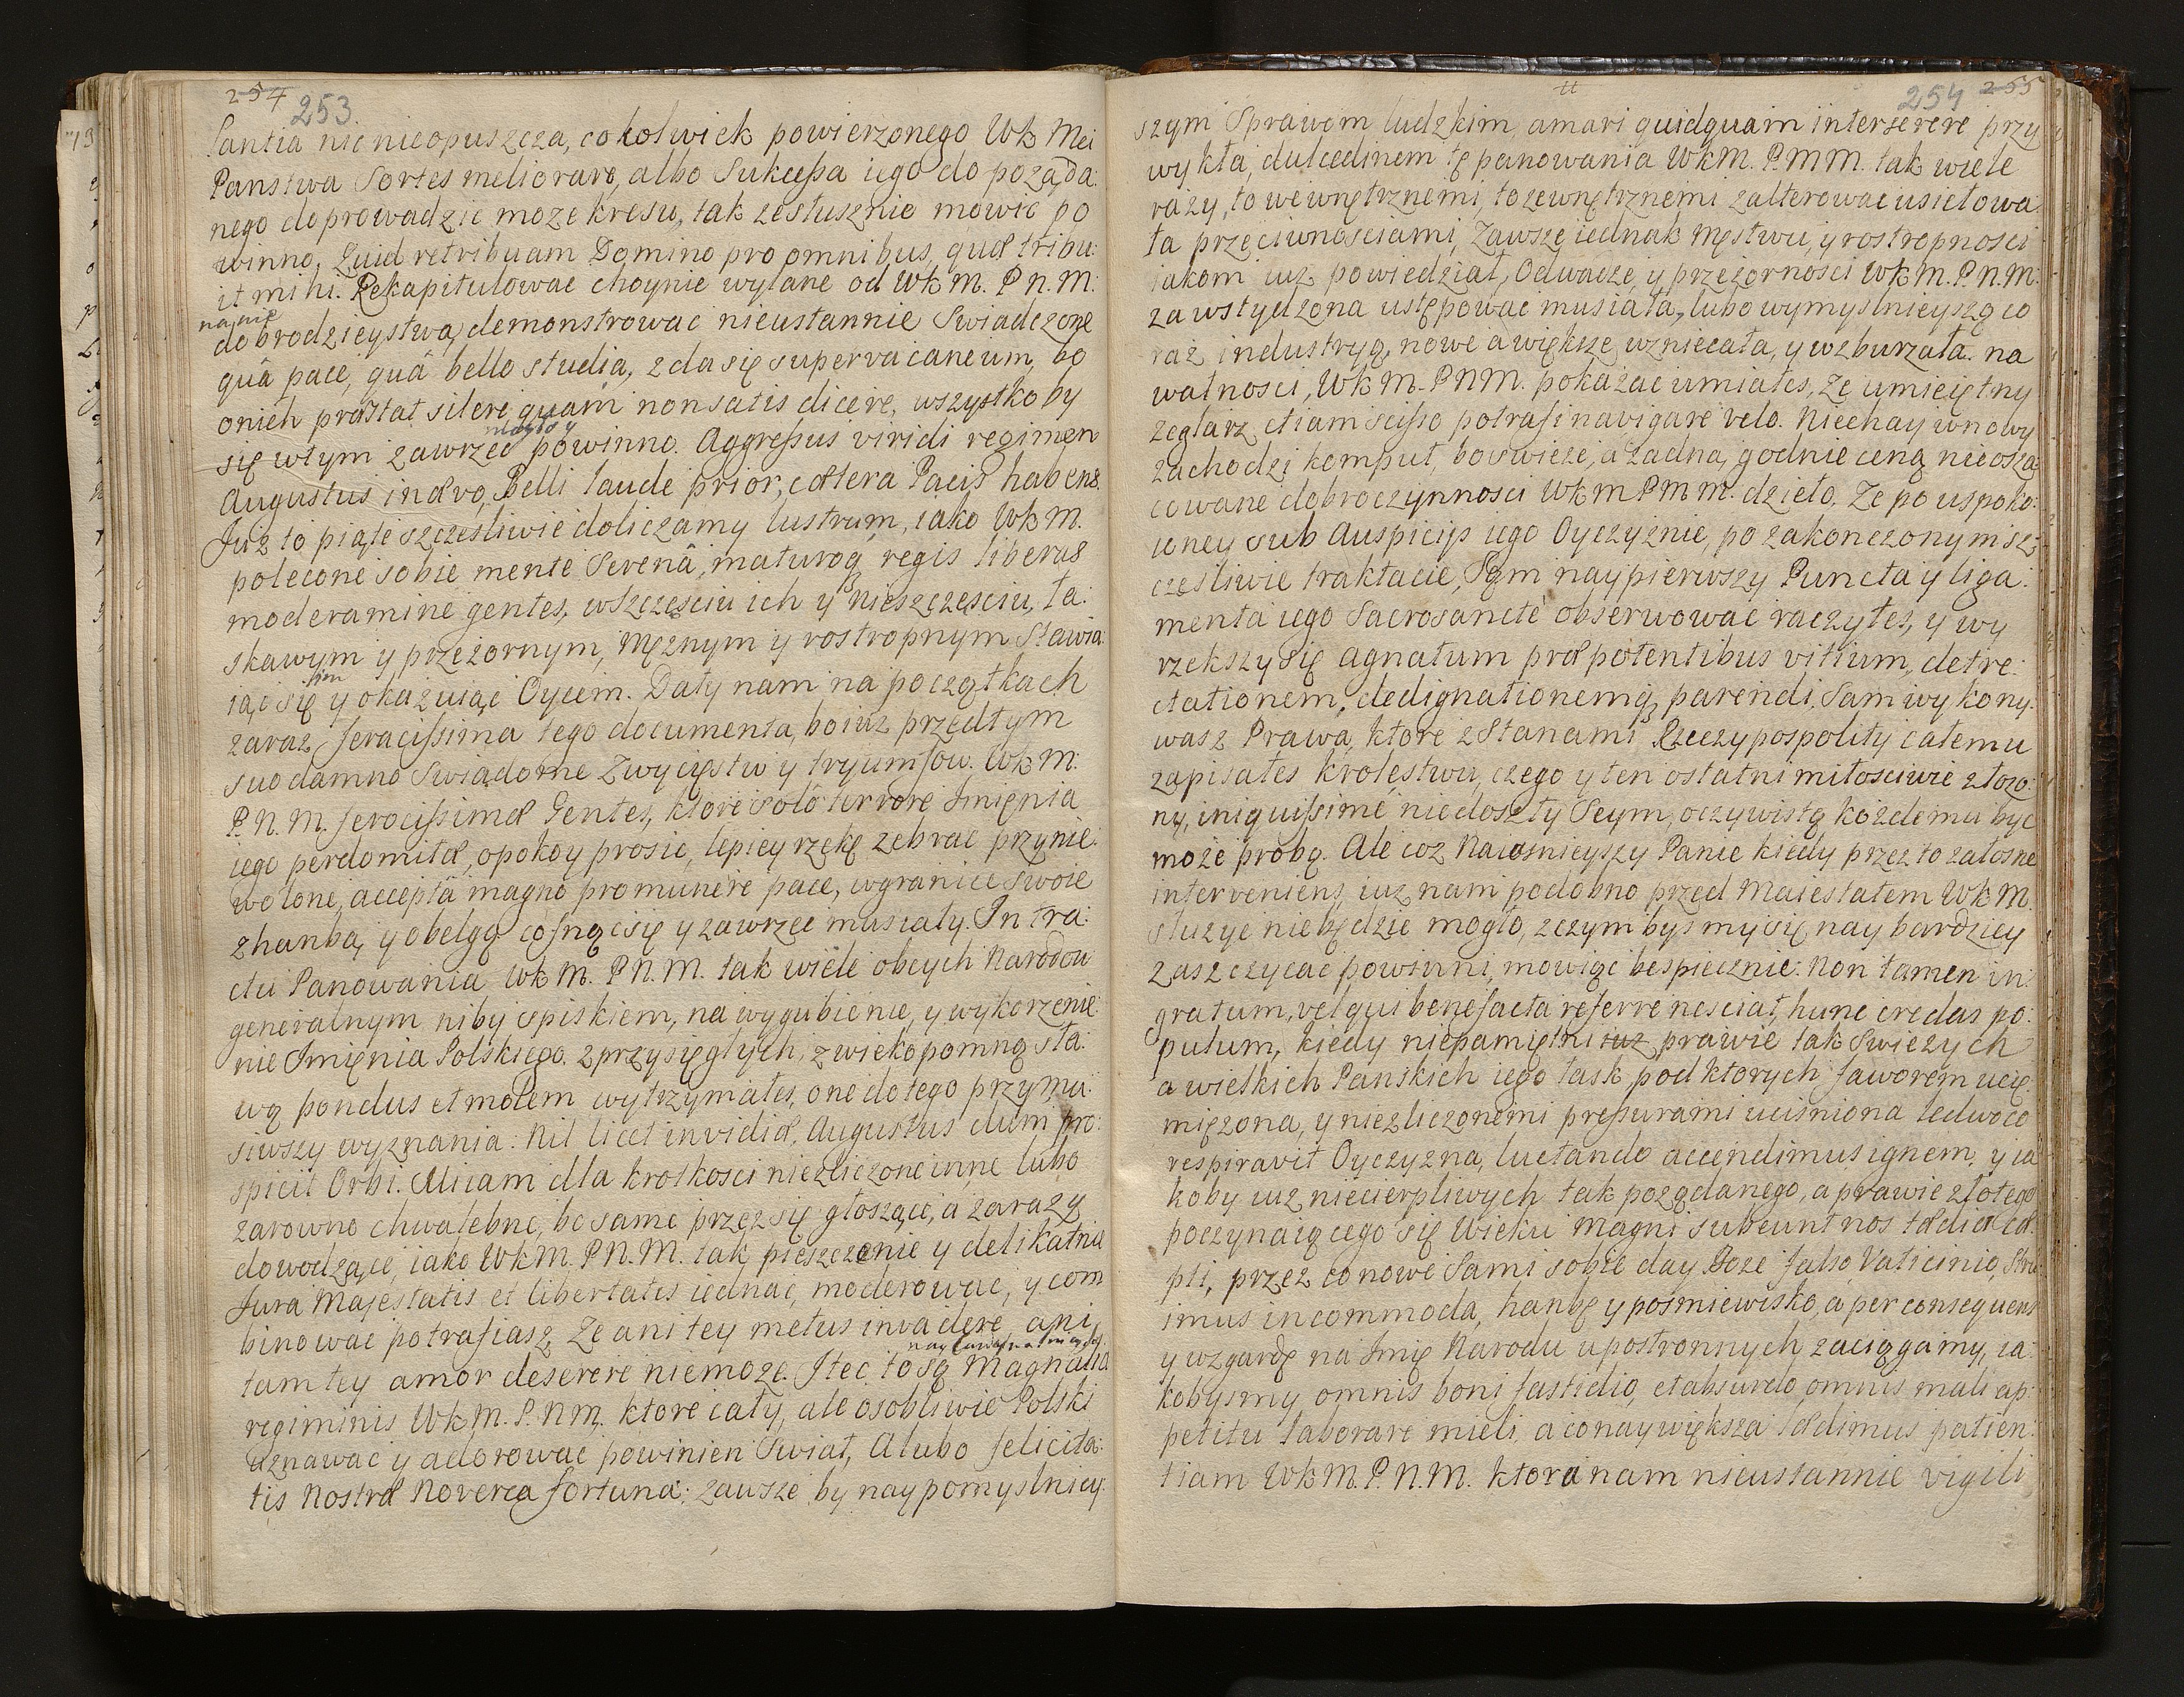 254 253
lantia nic nieopuszcza, cokolwiek powierzonego WK Mci
Panstwa Sortes meliorare, albo Sukcessa iego do pożąda:
nego doprowadzic moze kresu, tak ze słusznie mowic po
winno, Quid retribuam Domino pro omnibus, quæ tribu:
it mihi. Rekapitulowac choynie wylane od WK M. P N. M:
na nię
dobrodzieystwa, demonstrowac nieustannie Swiadczone
quâ pace, quâ bello studia, zda się supervacaneum, bo
onich præstat silere quam non satis dicere, wszystko by
się wtym zawrzec powinno. Aggressus viridi regimen
Augustus in ævo, Belli laude prior, cætera Pacis habens.
Juz to piąte szczesliwie doliczamy lustrum, iako WK M.
polecone sobie mente Serenâ, maturoq regis liberas
moderamine gentes, wszczęsciu ich y Nieszczęsciu, ła:
skawym y przezornym, Mężnym y rostropnym Stawia:
iąc się y okazuiąc Oycem. Dały nam na początkach
zaraz feracissima tego documenta, bo iuz przedtym
suo damno Swiadome Zwycięstw y tryumfow. WK M:
P. N. M. ferocissimæ Gentes, ktore solo terrore Imięnia
iego perdomitæ, opokoy prosic, lepiey rzekę zebrac przynie:
wolone, acceptâ magno pro munere pace, wgranice swoie
zhanbą y obelgą cofnąc się y zawrzec musiały. In tra:
ctu Panowania WK M. P N. M. tak wiele obcych Narodow
generalnym niby spiskiem, na wygubienie, y wykorzenie:
nie Imięnia Polskiego zprzysięgłych, zwiekopomną sła:
wą pondus et molem wytrzymałes, one do tego przymu:
siwszy wyznania: Nil licet invidiæ, Augustus dum pro:
spicit Orbi. Miiam dla krotkosci niezliczone inne lubo
zarowno chwalebne, bo same przez się głoszące, a zarazy
dowodzące, iako WK M. P N. M. tak pieszczenie y delikatnie
Jura Majestatis et libertatis iednac, moderowac, y com
binowac potrafiasz, Ze ani tey metus invadere, ani
tamtey amor deserere niemoze. Itec to są Magnalia
regiminis WK M. P. N M. ktore cały, ale osobliwie Polski
uznawac y adorowac powinien Swiat, A lubo felicita:
tis Nostræ Noverca fortuna: zawsze by naypomyslniey:
254 255
szym Sprawom ludzkim, amari quidquam interserere przy
wykła, dulcedinem tę panowania WKM. P. M M. tak wiele
razy, to wewnętrznemi, to zewnętrznemi zalterowac usiłowa:
ła przeciwnosciami, Zawsze iednak Męstwu, y rostropnosci
iakom iuz powiedział, Odwadze, y przezornosci WK M. P. N. M:
zawstydzona ustępowac musiała, lubo wymyslnieyszą co
raz industryą, nowe a większe wzniecała, y wzburzała. na
wałnosci, WK M. P N M. pokazac umiałes, Ze umieiętny
żeglarz etiam scisso potrafi navigare velo. Niechay wnowy
zachodzi komput, bo swieze, a zadną, godnie ceną nieosza
cowane dobroczynnosci WK M P M M. dzieło, Ze po uspoko:
ioney sub Auspicijs iego Oyczyznie, po zakonczonym sz:
częsliwie traktacie, Sam naypierwszy Puncta y liga:
menta iego Sacrosancte obserwowac raczyłes, y wy
rzekszy się Agnatum præpotentibus vitium, detre:
ctationem, dedignationemq parendi, Sam wykony:
wasz Prawa, ktore z Stanami Rzeczypospolity całemu
zapisałes krolestwu, czego y ten ostatni miłosciwie złozo:
ny, iniquissime niedoszły Seym, oczywistą kozdemu byc
może probą. Ale coz Naiasnieyszy Panie kiedy przez to załosne
interveniens, iuz nam podobno przed Maiestatem WK M.
słuzyc niebędzie mogło, zczym bysmy się nay bardziey
zaszczycac powinni, mowiąc bespiecznie: Non tamen in:
gratum, vel qui benefacta referre nesciat, hunc credas po:
pulum, kiedy niepamiętni iuz prawie tak Swiezych
a wielkich Panskich iego łask pod ktorych faworem ucię:
mięzona, y niezliczonemi pressurami ucisniona ledwo co
respiravit Oyczyzna, luctando accendimus ignem, y ia
koby iuz niecierpliwych tak poządanego, a prawie złotego
poczynaiącego się Wieku Magni subeunt nos tædia cæ:
pti, przez co nowe Sami sobie day Boze falso Vaticinio, Stru
imus incommoda, hanbę y posmiewisko, a per consequens
y wzgardę na Imię Narodu upostronnych zaciągamy, ia:
kobysmy omnis boni fastidio, et absurdo omnis mali ap:
petitu laborare mieli, a co naywiększa lædimus patien:
tiam WK M. P. N. M. ktora nam nieustannie vigili